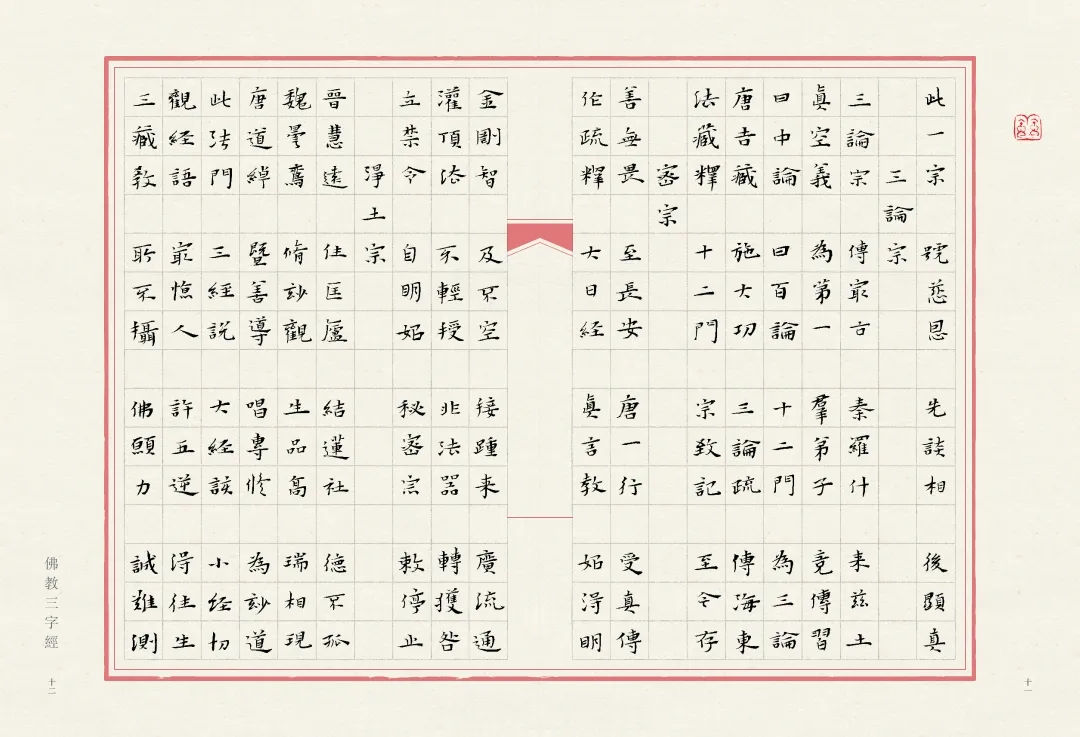 此一宗 號慈恩 先談相 後顯真
三論宗
三論宗 傳最古 秦羅什 来兹土
真空義 為第一 羣弟子 竞傳習
曰中論 曰百論 十二門 為三論
唐吉藏 施大功 三論疏 傳海東
法藏釋 十二門 宗致記 至今存
密宗
善無畏 至長安 唐一行 受真傳
作疏釋 大日経 真言教 始淂明
金剛智 及不空 接踵来 廣流通
灌頂法 不輕授 非法器 轉獲咎
立禁令 自明始 秘密宗 敕停止
淨土宗
晉慧遠 住匡廬 結蓮社 德不孤
魏曇鸞 脩妙觀 生品高 瑞相現
唐道綽 暨善導 唱專修 為妙道
此法門 三経説 大経該 小経切
觀経語 最人 許五逆 淂往生
三藏教 所不攝 佛願力 誠難測
佛教三字經
十二
十一